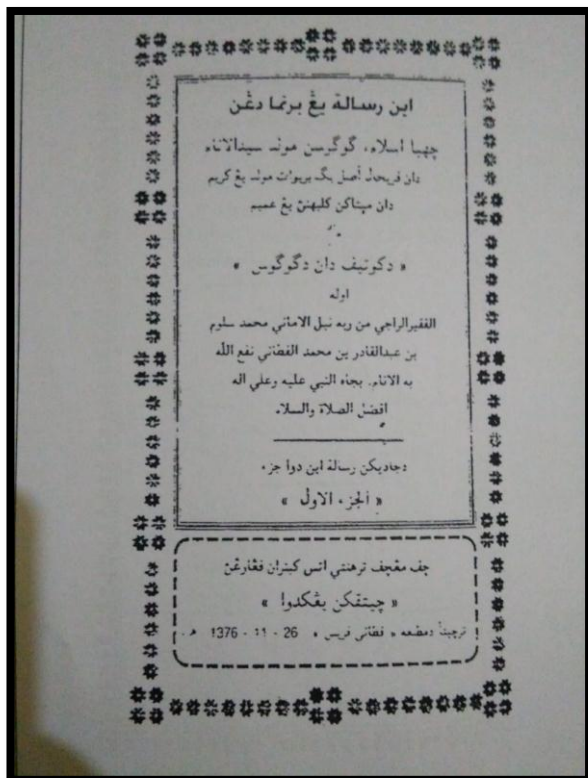 اين رسالة يڠ برنما دڠن
چهيا اسلام، گوگرسن مولد سيدالانام
دان ڤريحل أصل يڠ بربوات مولد يڠ كريم
دان مپتاكن كلبهنڽ يڠ عميم
« دكوتيف دان دگوگوس »
اوله
الفقيرالراجي من ربه نيل الاماني محمد سلوم
بن عبدالقادر بن محمد الفطاني نفع الله
به الانام. بجاه النبي عليه وعلي اله
افضل الصلاة والسلام
دجاديكن رسالة اين دوا جزء
« الجزء الاول »
چف مڠچف ترهنتي اتس كبنران ڤڠارڠن
« چيتقكن يڠكدوا »
ترچيتق دمطبعه « فطاني فريس » 26 - 11 - 1376 هـ .